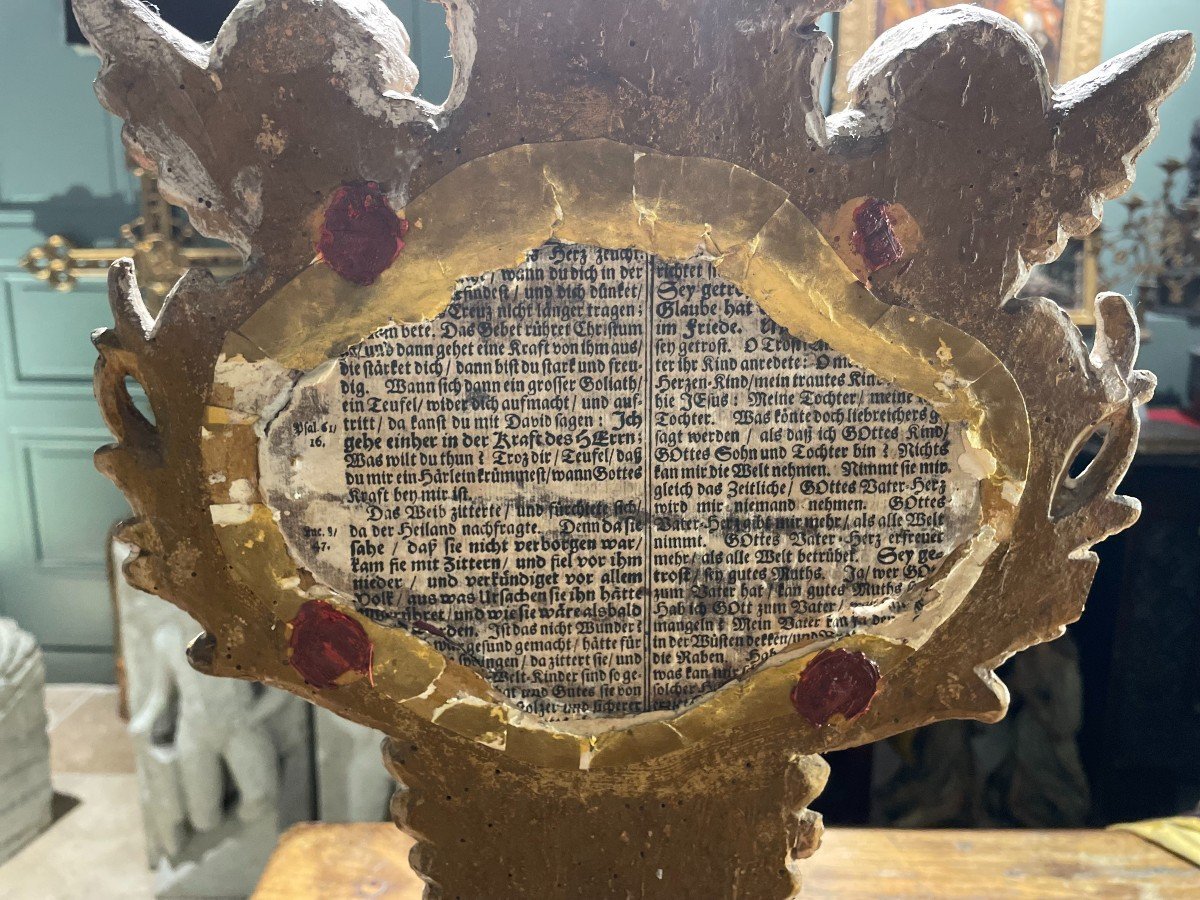 Herz zeucht.
wann du dich in der
findest / und dich dünket /
Creuz nicht länger tragen;
bete. Das Gebet rühret Christum
/ und dann gehet eine Kraft von ihm aus /
die stärket dich / dann bist du stark und freu-
dig. Wann sich dann ein grosser Goliath /
ein Teufel / wider dich aufmacht / und auf-
tritt / da kanst du mit David sagen: Ich
gehe einher in der Kraft des HErrn;
Was wilt du thun? Troz dir / Teufel / daß
du mir ein Härlein krümmest / wann Gottes
Kraft bey mir ist.
Das Weib zitterte / und fürchtete sich /
da der Heiland nachfragte. Denn da sie
sahe / daß sie nicht verborgen war /
kam sie mit Zittern / und fiel vor ihm
nieder / und verkündiget vor allem
Volk / aus was Ursachen sie ihn hätte
/ und wie sie wäre alsbald
Ist das nicht Wunder?
gesund gemacht / hätte für
/ da zittert sie / und
Welt-Kinder sind so ge-
und Gutes sie von
stolzer und sicherer
Psal. 61/
16.
Luc. 8/
47.
richtet
Sey
Glaube hat
im Friede.
sey getrost. O
ter ihr Kind anredete: O
Herzen-Kind / mein trautes
hie JEsus: Meine Tochter / meine
Tochter. Was könte doch liebreichers
sagt werden / als daß ich GOttes Kind /
GOttes Sohn und Tochter bin? Nichts
kan mir die Welt nehmen. Nimmt sie mir
gleich das Zeitliche / GOttes Vater-Herz
wird mir niemand nehmen. GOttes
Vater-Herz gibt mir mehr / als alle Welt
nimmt. GOttes Vater-Herz erfreuet
mehr / als alle Welt betrübet. Sey ge-
trost / sey gutes Muths. Ja / wer
zum Vater hat / kan gutes Muths
Hab ich GOtt zum Vater /
mangeln? Mein Vater kan
in der Wüsten decken / und
die Raben.
was kan
solcher